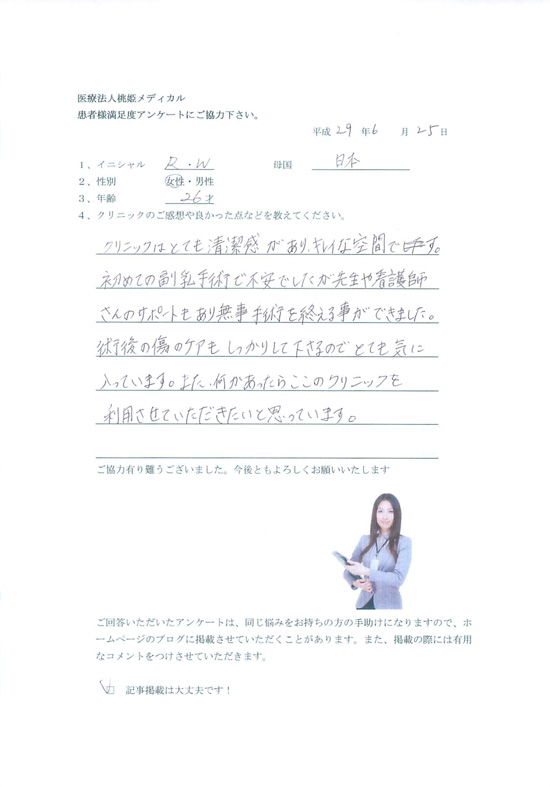 医療法人桃姫メディカル
患者様満足度アンケートにご協力下さい。
平成 29 年 6 月 25 日
1、イニシャル R・W 母国 日本
2、性別 女性・男性
3、年齢 26才
4、クリニックのご感想や良かった点などを教えてください。
クリニックはとても清潔感があり、キレイな空間です。
初めての副乳手術で不安でしたが先生や看護師
さんのサポートもあり無事手術を終える事ができました。
術後の傷のケアもしっかりして下さるのでとても気に
入っています。また、何かあったらここのクリニックを
利用させていただきたいと思っています。
ご協力有り難うございました。今後ともよろしくお願いいたします
ご回答いただいたアンケートは、同じ悩みをお持ちの方の手助けになりますので、ホ
ームページのブログに掲載させていただくことがあります。また、掲載の際には有用
なコメントをつけさせていただきます。
記事掲載は大丈夫です！